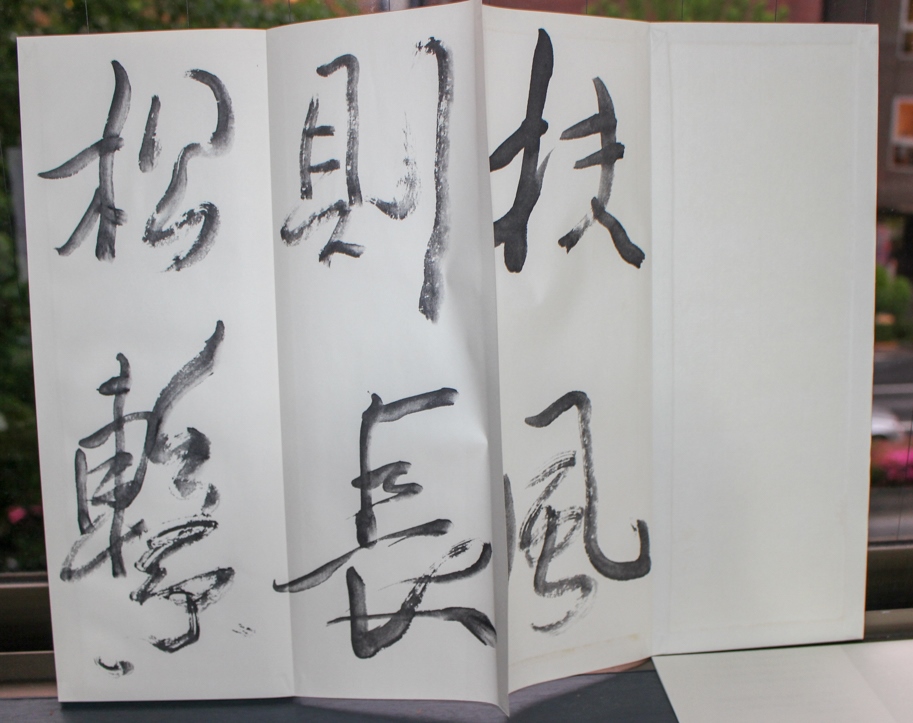 扶風
則長
松